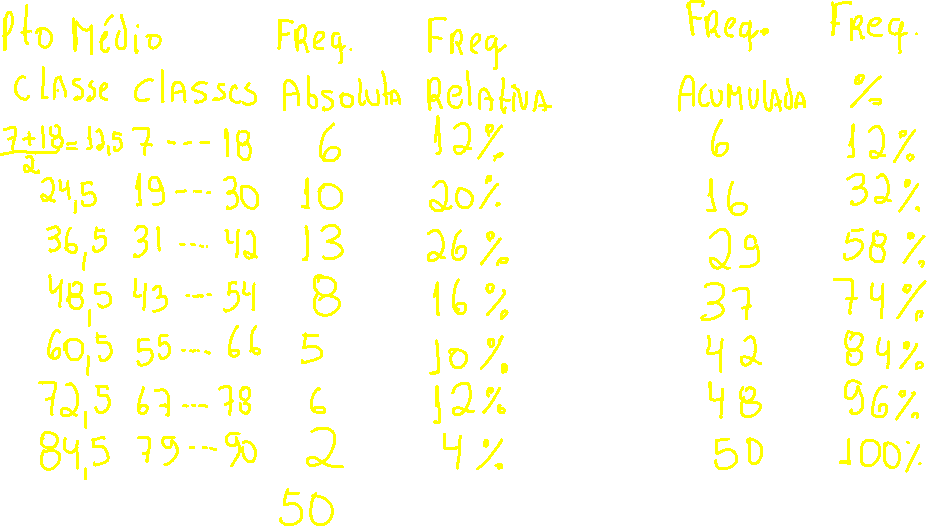 Pto Médio Freq. Freq Freq. Freq.
Classe Classes Absoluta Relativa Acumulada %
7+18/2=12,5 7 --- 18 6 12% 6 12%
24,5 19 --- 30 10 20% 16 32%
36,5 31 --- 42 13 26% 29 58%
48,5 43 --- 54 8 16% 37 74%
60,5 55 --- 66 5 10% 42 84%
72,5 67 --- 78 6 12% 48 96%
84,5 79 --- 90 2 4% 50 100%
50